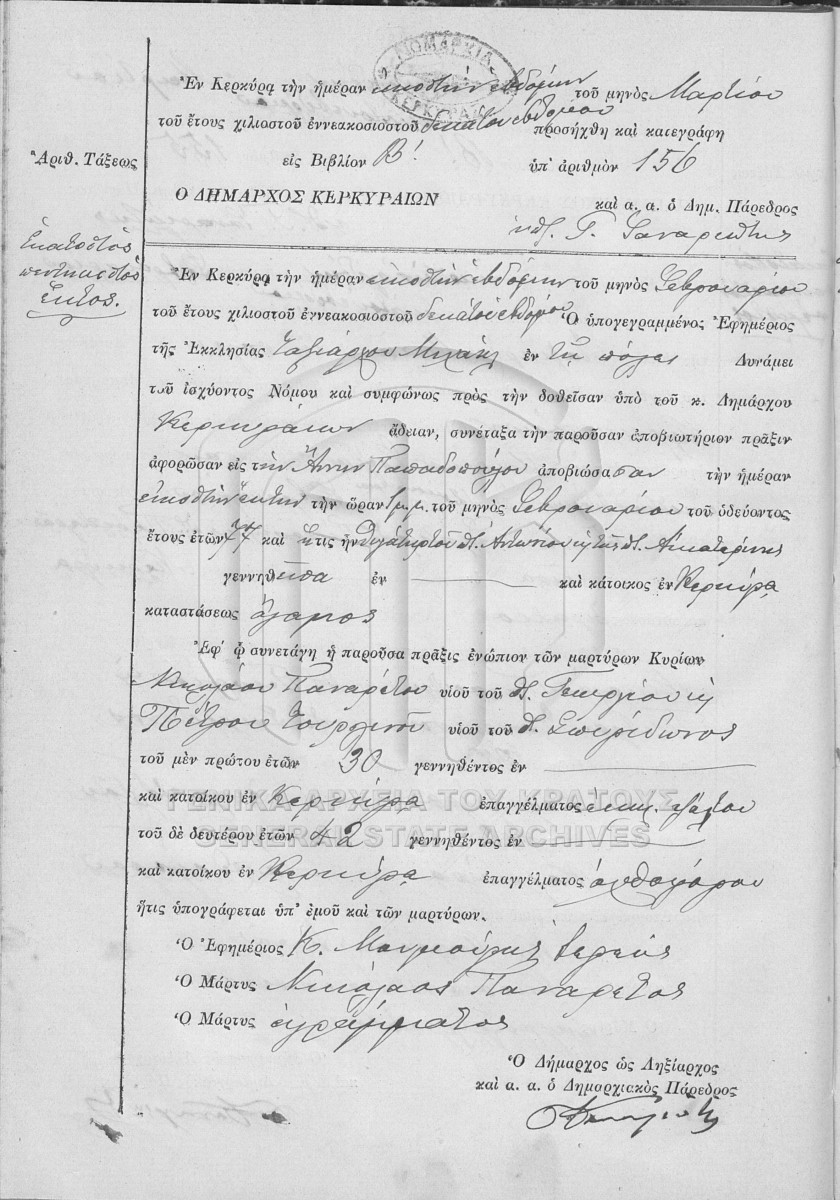 ΝΟΜΑΡΧΙΑ
ΚΕΡΚΥΡΑΣ
Ἐν Κερκύρᾳ τὴν ἡμέραν εἰκοστὴν ἑβδόμην τοῦ μηνὸς Μαρτίου
τοῦ ἔτους χιλιοστοῦ ἐννεακοσιοστοῦ δεκάτου ἑβδόμου προσήχθη καὶ κατεγράφη
Ἀριθ. Τάξεως
εἰς Βιβλίον Β! ὑπ' ἀριθμὸν 156
Ο ΔΗΜΑΡΧΟΣ ΚΕΡΚΥΡΑΙΩΝ
καὶ α. α. ὁ Δημ. Πάρεδρος
Γ.
Ἑκατοστὸς
πεντηκοστὸς
ἕκτος.
Ἐν Κερκύρᾳ τὴν ἡμέραν εἰκοστὴν ἑβδόμην τοῦ μηνὸς Φεβρουαρίου
τοῦ ἔτους χιλιοστοῦ ἐννεακοσιοστοῦ δεκάτου ἑβδόμου Ὁ ὑπογεγραμμένος Ἐφημέριος
τῆς Ἐκκλησίας Ταξιάρχου Μιχαὴλ ἐν τῇ πόλει Δυνάμει
τοῦ ἰσχύοντος Νόμου καὶ συμφώνως πρὸς τὴν δοθεῖσαν ὑπὸ τοῦ κ. Δημάρχου
Κερκυραίων ἄδειαν, συνέταξα τὴν παροῦσαν ἀποβιωτήριον πρᾶξιν
ἀφορῶσαν εἰς τὴν Ἄννην Παπαδοπούλου ἀποβιώσασαν τὴν ἡμέραν
εἰκοστὴν ἕκτην τὴν ὥραν 1 μ.μ. τοῦ μηνὸς Φεβρουαρίου τοῦ ὁδεύοντος
ἔτους ἐτῶν 77 καὶ ἥτις ἦν θυγάτηρ τοῦ π. Ἀντωνίου κ τῆς π. Αἰκατερίνης
γεννηθεῖσα ἐν καὶ κάτοικος ἐν Κερκύρᾳ
καταστάσεως ἄγαμος
Ἐφ' ᾧ συνετάγη ἡ παροῦσα πρᾶξις ἐνώπιον τῶν μαρτύρων Κυρίων
Νικολάου Παναρέτου υἱοῦ τοῦ π. Γεωργίου κ
Πέτρου υἱοῦ τοῦ π. Σπυρίδωνος
τοῦ μὲν πρώτου ἐτῶν 30 γεννηθέντος ἐν
καὶ κατοίκου ἐν Κερκύρᾳ ἐπαγγέλματος
ΓΕΝΙΚΑ ΑΡΧΕΙΑ ΤΟΥ ΚΡΑΤΟΥΣ
GENERAL STATE ARCHIVES
τοῦ δὲ δευτέρου ἐτῶν 42 γεννηθέντος ἐν
καὶ κατοίκου ἐν Κερκύρᾳ ἐπαγγέλματος ἀχθοφόρου
ἥτις ὑπογράφεται ὑπ' ἐμοῦ καὶ τῶν μαρτύρων.
Ὁ Ἐφημέριος Κ. ἱερεύς
Ὁ Μάρτυς Νικόλαος Παναρετος
Ὁ Μάρτυς ἀγράμματος
Ὁ Δήμαρχος ὡς Ληξίαρχος
καὶ α. α. ὁ Δημαρχιακὸς Πάρεδρος